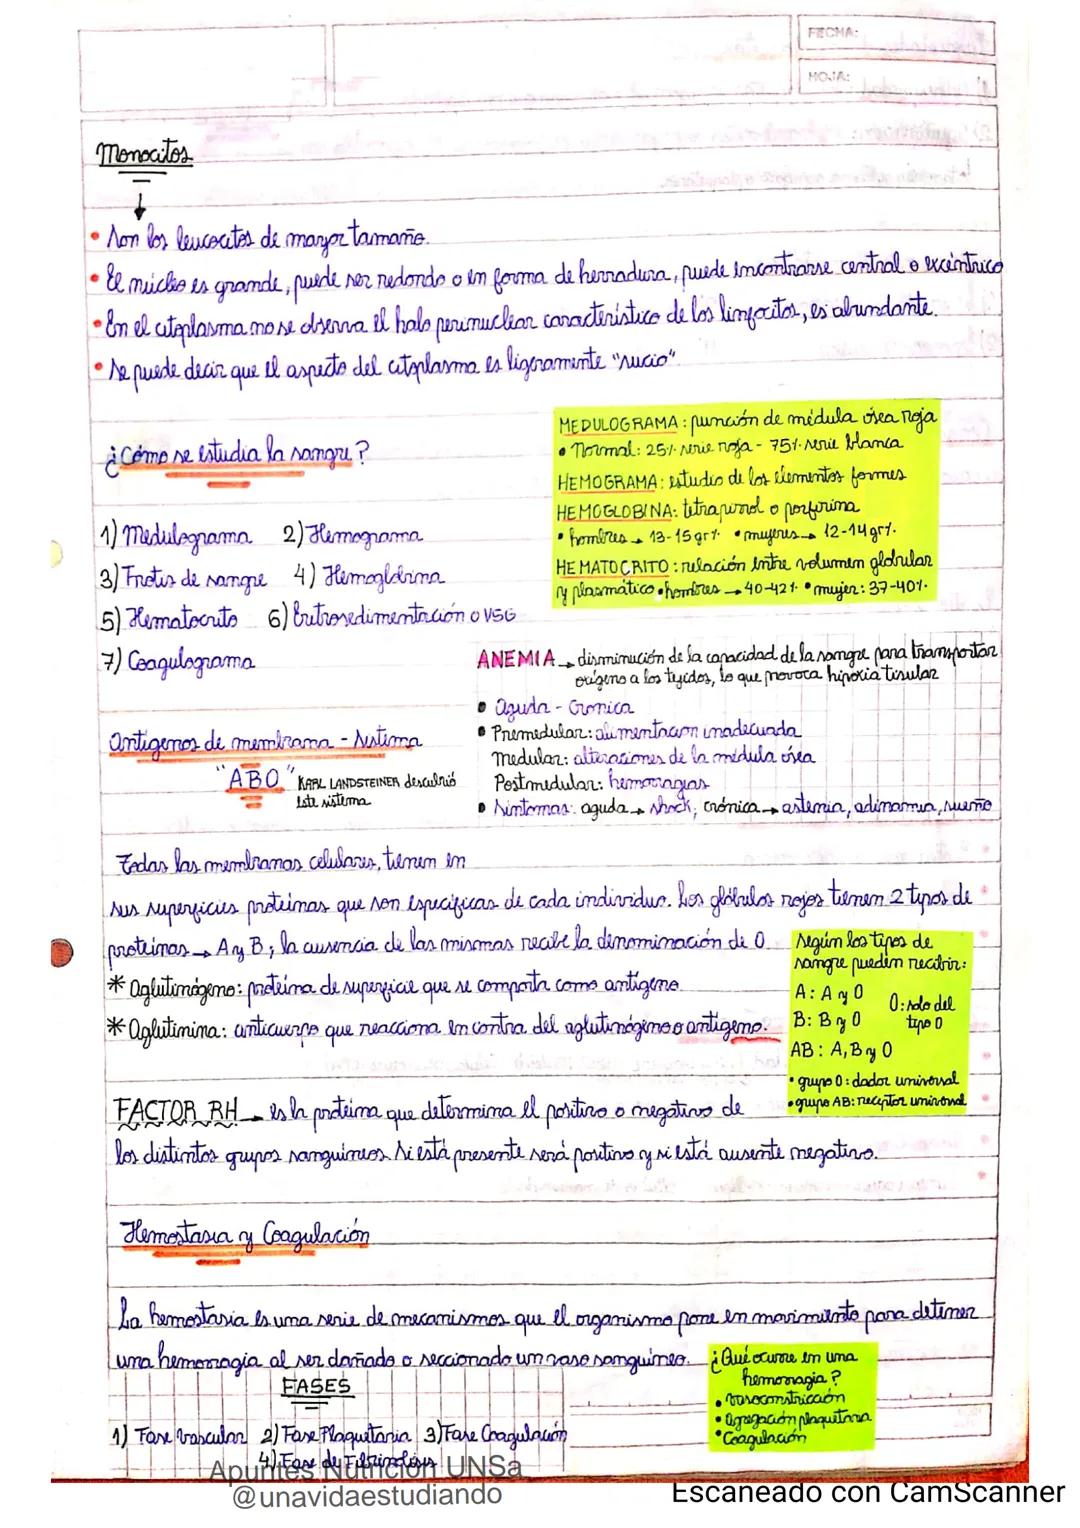 FECHA:
HOJA:
Monocitos
• Son los leucocitos de mayor tamaño.
• El núcleo es grande, puede ser redondo o en forma de herradura, puede encontrarse central o excéntrico
• En el citoplasma no se observa el halo perinuclear característico de los linfocitos, es abundante.
• Se puede decir que el aspecto del citoplasma es ligeramente "sucio".
¿Cómo se estudia la sangre?
1) Medulograma 2) Hemograma
3) Frotis de sangre 4) Hemoglobina
5) Hematocrito 6) Eritrosedimentación o VSG
7) Coagulograma
MEDULOGRAMA: punción de médula ósea roja
• Normal: 25% serie roja - 75% serie blanca
HEMOGRAMA: estudio de los elementos formes
HEMOGLOBINA: tetrapirrol o porfirina
• hombres → 13-15 gr% • mujeres → 12-14 gr%
HEMATOCRITO: relación entre volumen globular
y plasmático • hombres → 40-42% • mujer: 37-40%
ANEMIA → disminución de la capacidad de la sangre para transportar
oxígeno a los tejidos, lo que provoca hipoxia tisular
• Aguda - Crónica
• Premedular: alimentación inadecuada
Medular: alteraciones de la médula ósea
Postmedular: hemorragias
• Síntomas: aguda → shock; crónica → astenia, adinamia, sueño
Antígenos de membrana - Sistema
"ABO" KARL LANDSTEINER descubrió
este sistema
Todas las membranas celulares, tienen en
sus superficies proteínas que son específicas de cada individuo. Los glóbulos rojos tienen 2 tipos de
proteínas → A y B; la ausencia de las mismas recibe la denominación de O.
* Aglutinógeno: proteína de superficie que se comporta como antígeno.
* Aglutinina: anticuerpo que reacciona en contra del aglutinógeno o antígeno.
Según los tipos de
sangre pueden recibir:
A: A y O
B: B y O
O: solo del
tipo O
AB: A, B y O
• grupo O: dador universal
• grupo AB: receptor universal
FACTOR RH → es la proteína que determina el positivo o negativo de
los distintos grupos sanguíneos. Si está presente será positivo y si está ausente negativo.
Hemostasia y Coagulación
La hemostasia es una serie de mecanismos que el organismo pone en movimiento para detener
una hemorragia al ser dañado o seccionado un vaso sanguíneo.
¿Qué ocurre en una
hemorragia?
• vasoconstricción
• Agregación plaquetaria
• Coagulación
FASES
1) Fase Vascular 2) Fase Plaquetaria 3) Fase Coagulación
4) Fase de Fibrinólisis
Apuntes Nutrición UNSa
@unavidaestudiando
Escaneado con CamScanner